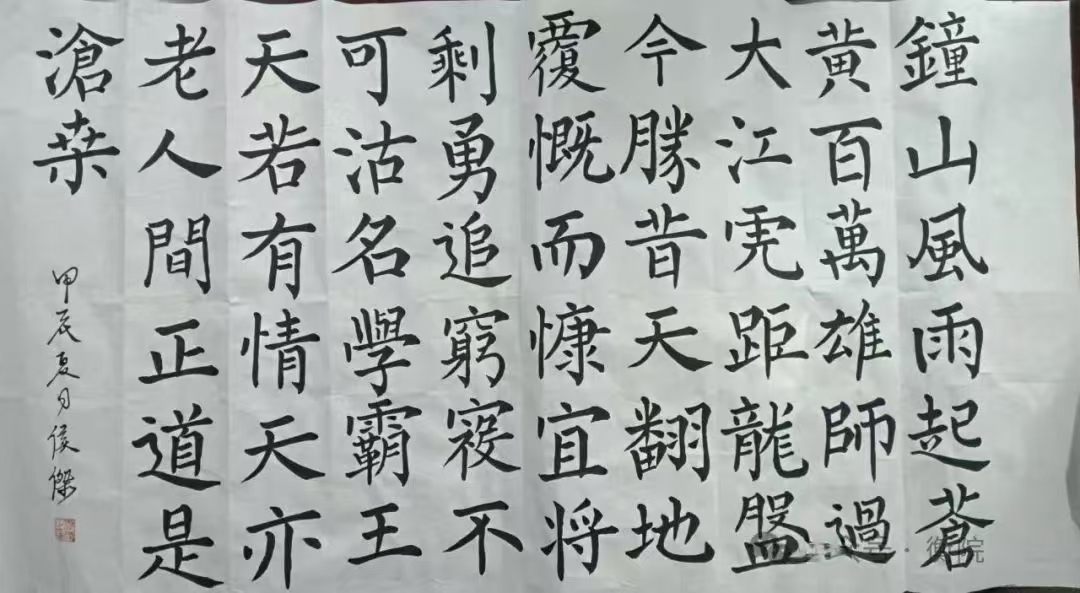 鐘山風雨起蒼
黃百萬雄師過
大江虎距龍盤
今勝昔天翻地
覆慨而慷宜将
剩勇追窮寇不
可沽名學霸王
天若有情天亦
老人間正道是
滄桑
甲辰夏月侯傑